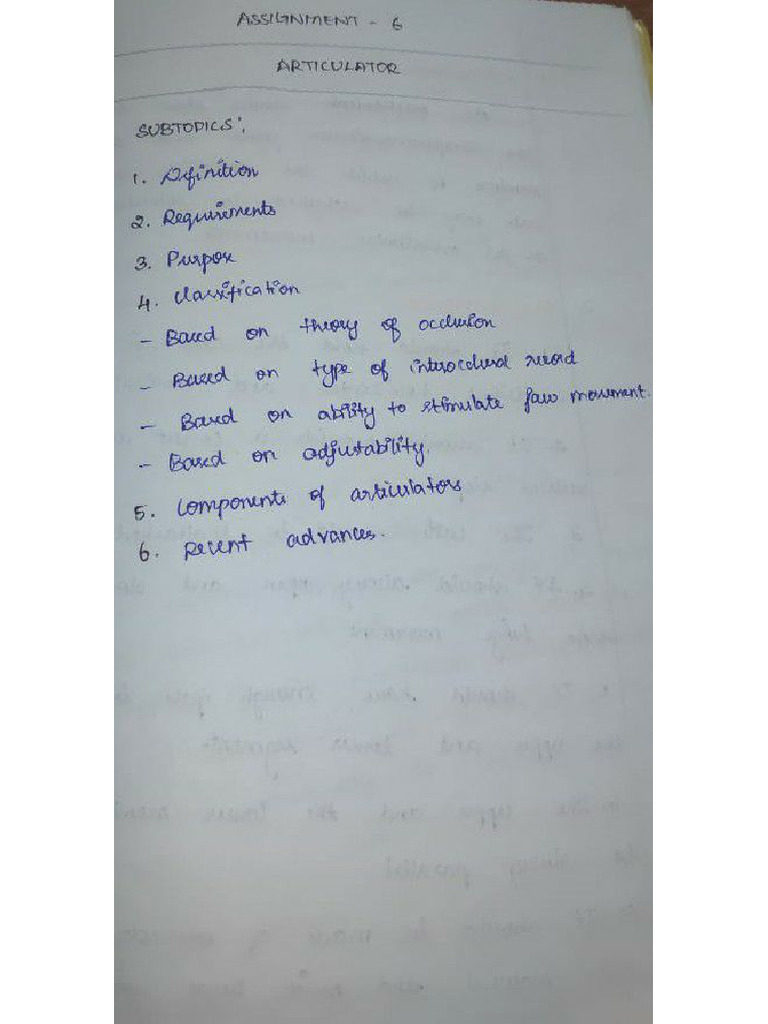 ASSIGNMENT - 6
ARTICULATOR
SUBTOPICS:
1. Definition
2. Requirements
3. Purpose
4. Classification
- Based on theory of occlusion
- Based on type of interocclusal record
- Based on ability to stimulate jaw movement.
- Based on adjustability.
5. Components of articulators
6. Recent advances.